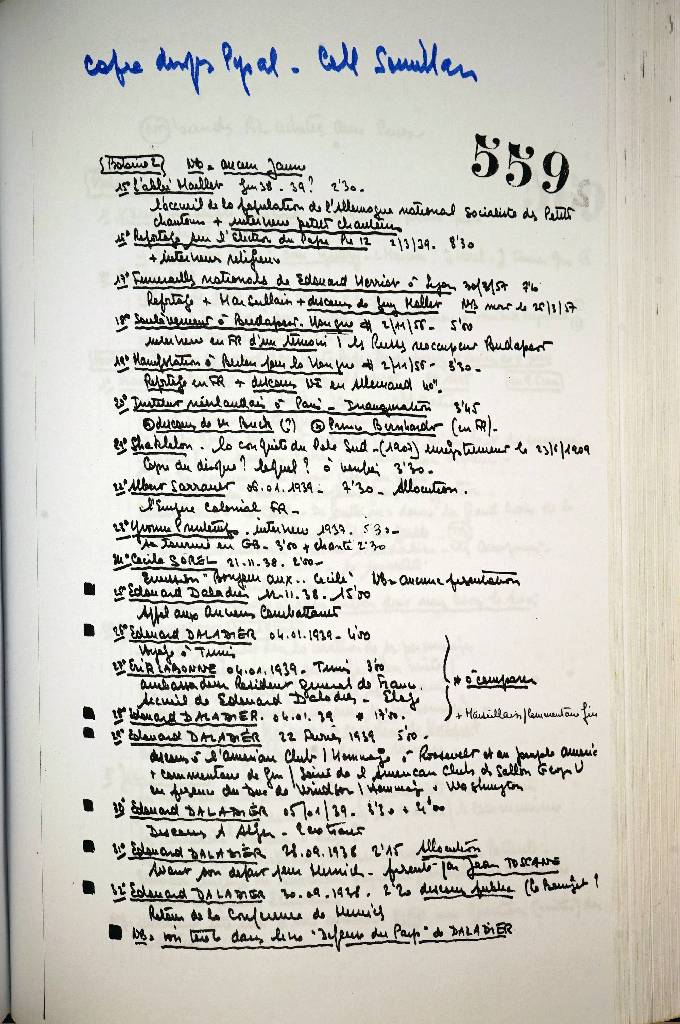 copie disques Pyral - Coll
559
Bobine 2 NB = aucun
15° L'abbé Maillet Juin 38 - 39? 2'30 -
L'accueil de la population de l'Allemagne national Socialiste des Petits
chanteurs + interview petit chanteur
16° Reportage sur l'Election du Pape Pie 12 2/3/39. 8'30
+ interviews religieux
17° Funerailles nationales de Edouard Herriot à Lyon 30/3/57
Reportage + Marseillaise + discours de Guy Mollet NB mort le 26/3/57
18° Soulèvement à Budapest. Hongrie # 2/11/56 - 5'00
interview en FR d'un témoin / les Russes reoccupent Budapest
19° Manifestation à Berlin pour la Hongrie # 2/11/56 - 3'30 -
Reportage en FR + discours en Allemand
20° Institut néerlandais à Paris - Inauguration 3'45
① discours de Mr (?) ② Prince Bernhardt (en FR) -
21° Shakleton. la conquête du Pole Sud - (1907) enregistrement le 23/6/1909
Copie du disque? lequel? à verifier 3'30 -
22° Albert Sarraut 06.01.1939 - 7'30 - Allocution.
L'Empire Colonial FR -
23° Yvonne Printemps. interview 1937. 5'30 -
sa tournée en GB - 3'00 + chante 2'30
24° Cecile SOREL 21.11.38. 2'00 -
Emission "Bonjour aux.. Cecile" NB = aucune presentation
25° Edouard Daladier 11.11.38. - 15'00
Appel aux Anciens Combattants
26° Edouard DALADIER 04.01.1939 - 4'00
Voyage à Tunis
27° Erik LABONNE 04.01.1939 - Tunis 3'00
ambassadeur Resident General de France.
Accueil de Edouard Daladier - Eloge
* à comparer
28° Edouard DALADIER. 04.01.39 # 17'00.
+ Marseillaise/Commentaire fin
29° Edouard DALADIER 22 Fevrier 1939 5'00 -
discours à l'American Club / Hommage à Roosevelt et au peuple americ
+ commentaire de fin / Soirée de l'American Club du Salon George V
en presence du Duc de Windsor / Hommage à Washington
30° Edouard DALADIER 05/01/39 - 3'30 + 4'00
Discours à Alger - 2 extraits
31° Edouard DALADIER 28.09.1938 2'15 Allocution
Avant son depart pour Munich - presenté par Jean TOSCANE
32° Edouard DALADIER 30.09.1938. 2'20 discours public (le Bourget?
Retour de la Conference de Munich
NB = voir texte dans livre "Defense du Pays" de DALADIER